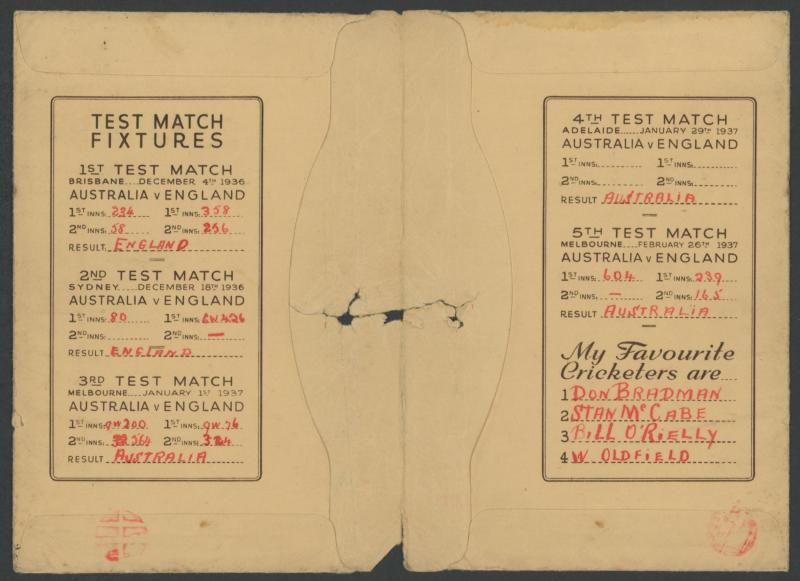 TEST MATCH
FIXTURES
1ST TEST MATCH
BRISBANE....DECEMBER 4TH 1936
AUSTRALIA v ENGLAND
1ST INNS: 234 1ST INNS: 358
2ND INNS: 58 2ND INNS: 256
RESULT. ENGLAND
2ND TEST MATCH
SYDNEY....DECEMBER 18TH 1936
AUSTRALIA v ENGLAND
1ST INNS: 80 1ST INNS: 6W426
2ND INNS: – 2ND INNS: –
RESULT ENGLAND
3RD TEST MATCH
MELBOURNE....JANUARY 1ST 1937
AUSTRALIA v ENGLAND
1ST INNS: 9W200 1ST INNS: 9W76
2ND INNS: 564 2ND INNS: 324
RESULT AUSTRALIA
4TH TEST MATCH
ADELAIDE.....JANUARY 29TH 1937
AUSTRALIA v ENGLAND
1ST INNS: 1ST INNS:
2ND INNS: 2ND INNS:
RESULT AUSTRALIA
5TH TEST MATCH
MELBOURNE....FEBRUARY 26TH 1937
AUSTRALIA v ENGLAND
1ST INNS: 604 1ST INNS: 239
2ND INNS: – 2ND INNS: 165
RESULT AUSTRALIA
My Favourite
Cricketers are....
1 DON BRADMAN
2 STAN McCABE
3 BILL O'RIELLY
4 W OLDFIELD